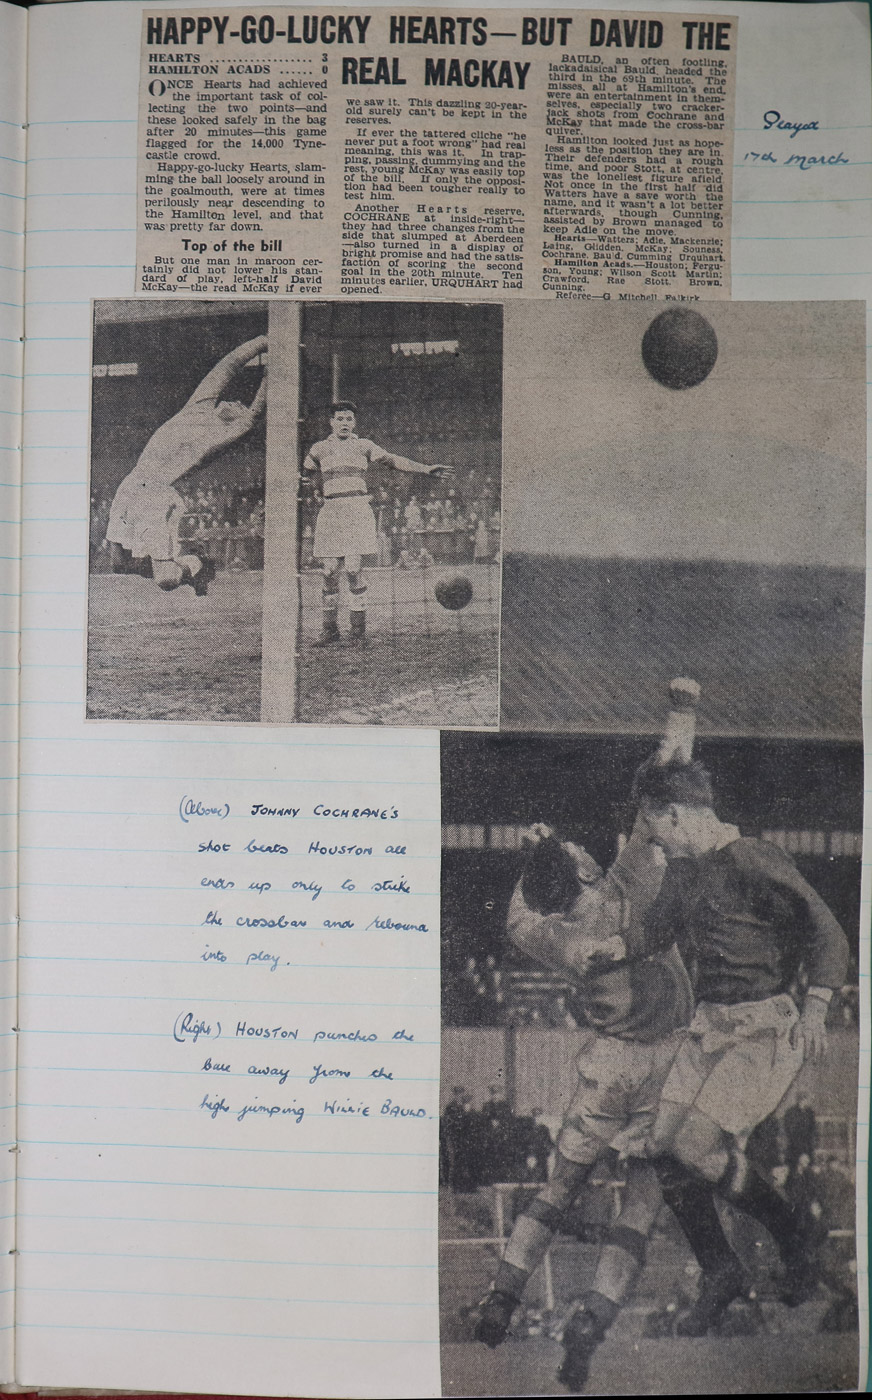 HAPPY-GO-LUCKY HEARTS—BUT DAVID THE
REAL MACKAY
HEARTS .................. 3
HAMILTON ACADS ...... 0
ONCE Hearts had achieved
the important task of col-
lecting the two points—and
these looked safely in the bag
after 20 minutes—this game
flagged for the 14,000 Tyne-
castle crowd.
Happy-go-lucky Hearts, slam-
ming the ball loosely around in
the goalmouth, were at times
perilously near descending to
the Hamilton level, and that
was pretty far down.
Top of the bill
But one man in maroon cer-
tainly did not lower his stan-
dard of play, left-half David
McKay—the read McKay if ever
we saw it. This dazzling 20-year-
old surely can't be kept in the
reserves.
If ever the tattered cliche "he
never put a foot wrong" had real
meaning, this was it. In trap-
ping, passing, dummying and the
rest, young McKay was easily top
of the bill. If only the opposi-
tion had been tougher really to
test him.
Another Hearts reserve,
COCHRANE at inside-right—
they had three changes from the
side that slumped at Aberdeen
—also turned in a display of
bright promise and had the satis-
faction of scoring the second
goal in the 20th minute. Ten
minutes earlier, URQUHART had
opened.
BAULD, an often footling,
lackadaisical Bauld, headed the
third in the 69th minute. The
misses, all at Hamilton's end,
were an entertainment in them-
selves, especially two cracker-
jack shots from Cochrane and
McKay that made the cross-bar
quiver.
Hamilton looked just as hope-
less as the position they are in.
Their defenders had a rough
time, and poor Stott, at centre,
was the loneliest figure afield.
Not once in the first half did
Watters have a save worth the
name, and it wasn't a lot better
afterwards, though Cunning,
assisted by Brown managed to
keep Adie on the move.
Hearts—Watters; Adie, Mackenzie;
Laing, Glidden, McKay; Souness,
Cochrane, Bauld, Cumming Urquhart.
Hamilton Acads.—Houston; Fergu-
son, Young; Wilson Scott Martin;
Crawford, Rae Stott, Brown,
Cunning.
Referee—G Mitchell Falkirk
Played
17th March
(Above) JOHNNY COCHRANE'S
shot beats HOUSTON all
ends up only to strike
the crossbar and rebound
into play.
(Right) HOUSTON punches the
ball away from the
high jumping WILLIE BAULD.